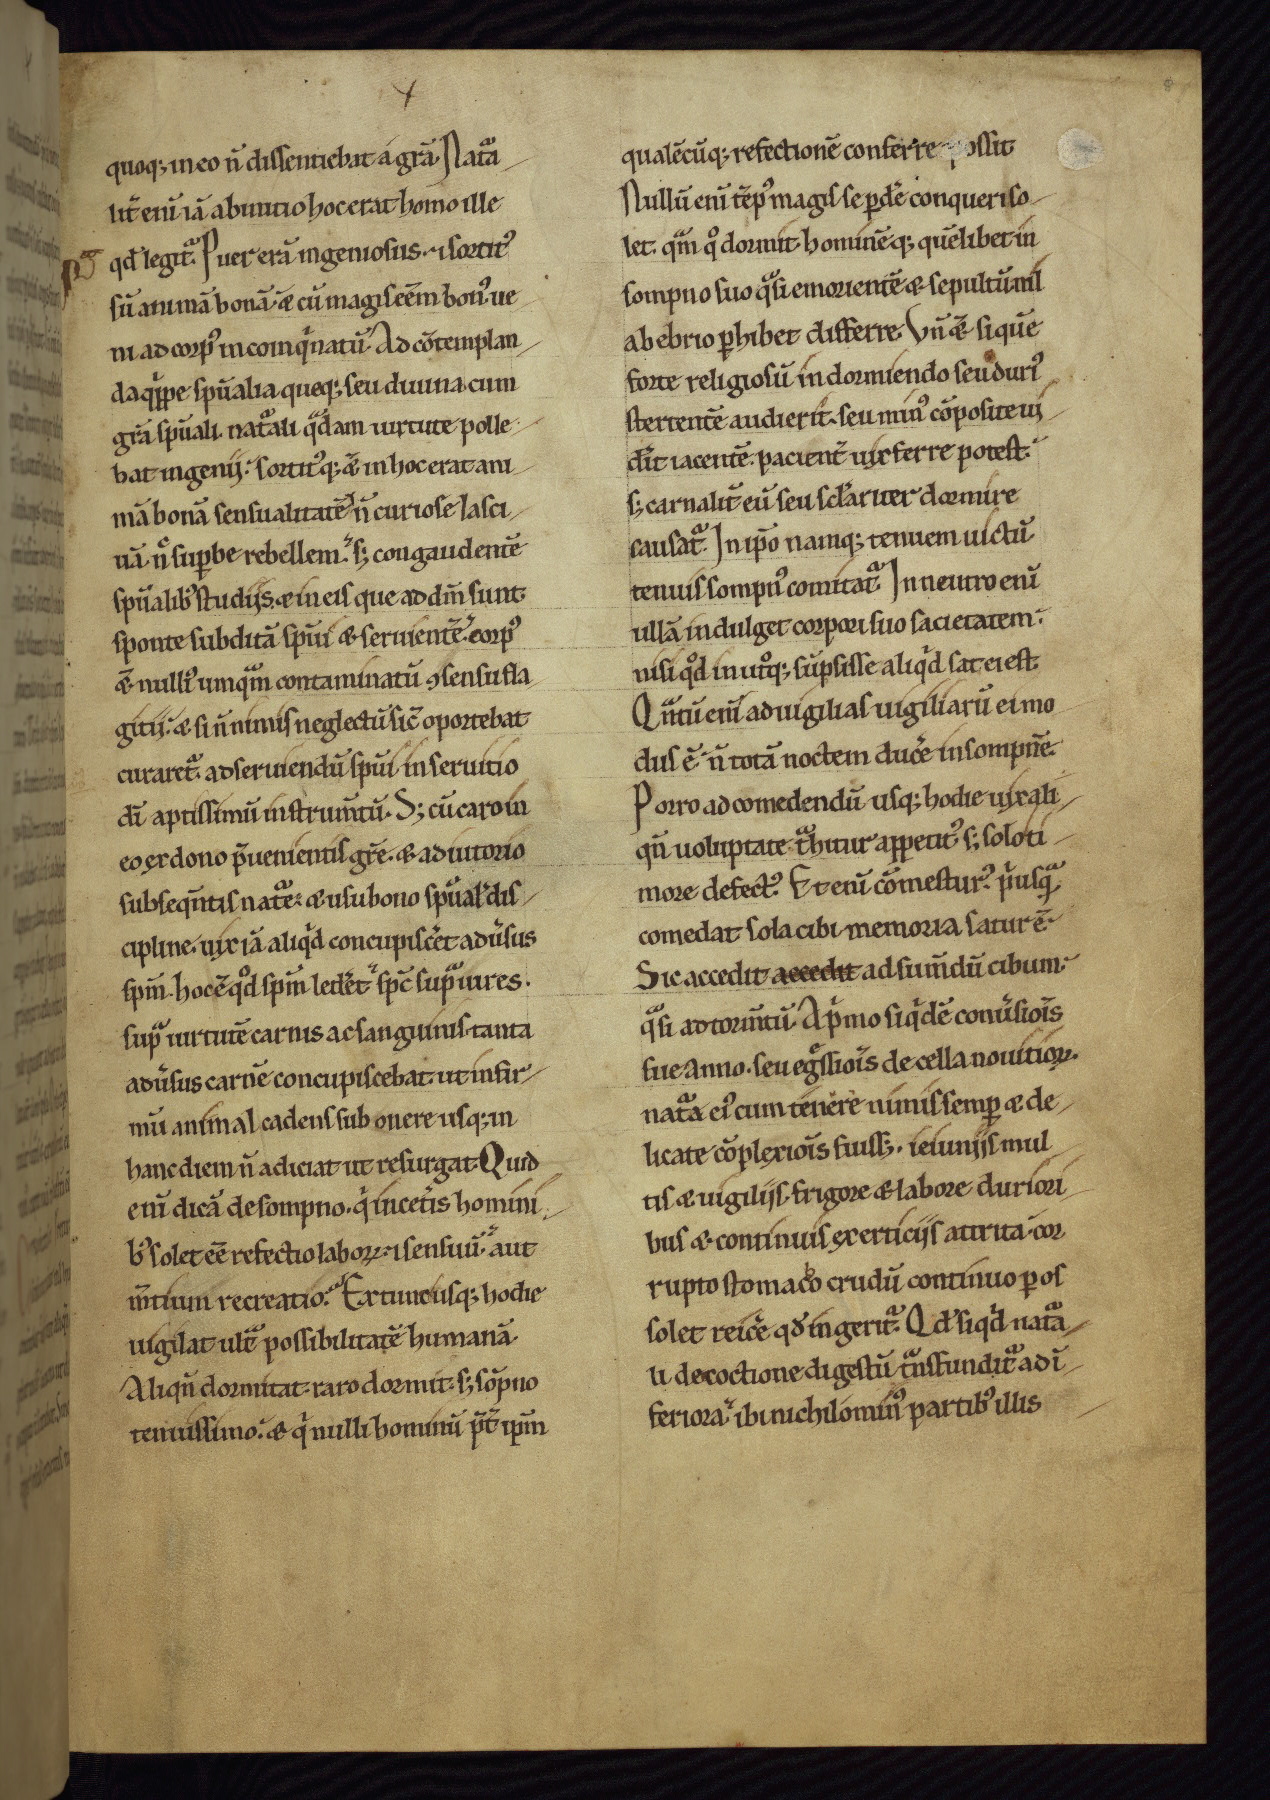 quoq; in eo n̄ dissentiebat a gr̄a. Nata
lit̄ eni̅ iā ab initio hoc erat homo ille
qd̄ legit᷑. Puer erā ingeniosus. ⁊ sortit᷒
sū animā bonā. & cū magis eēm bon᷒. ue
ni ad corp᷒ incoinq̄natū. Ad cōtemplan
da q̄ppe spūalia queq; seu diuina cum
gr̄a spūali. nat᷑ali q̄dam uirtute polle
bat ingenij. sortit᷒q; & in hoc erat ani
mā bonā sensualitatē n̄ curiose lasci
uā. n̄ supbe rebellem. s; congaudentē
spūalib᷒ studijs. & in eis que ad dm̄ sunt
sponte subditā spūi & seruientē. corp᷒
& nulli᷒ umq̄m contaminatū ↄsensu fla
gitij. & si n̄ nimis neglectū sic̄ oportebat
curaret᷑. ad seruiendū spūi in seruitio
dī aptissimū instrum̄tū. S; cū caro in
eo ex dono p̄uenientis gr̄e. & adiutorio
subseq̄ntis nat᷑e. & usu bono spūal᷒ dis
cipline. uix iā aliq̄d concupisc̄et adūsus
spm̄. hoc ē qd̄ spm̄ led̄et. spc̄ sup̄ uires.
sup̄ uirtutē carnis ac sanguinis. tanta
adūsus carnē concupiscebat. ut infir
mū animal cadens sub onere usq; in
hanc diem n̄ adiciat ut resurgat. Quid
eni̅ dicā de sompno. q̄ in cet̄is homini
b᷒ solet eē refectio laborꝝ. ⁊ sensuū. aut
m̄tium recreatio. Ex tunc usq; hodie
uigilat ult̄ possibilitatē humanā.
Aliqn̄ dormitat. raro dormit. s; sōpno
tenuissimo. & q̄ nulli hominū p̄t̄ ipm̄
qualēcūq; refectionē conferre possit
Nullū eni̅ tēp᷒ magis se pd̄e conqueri so
let. q̄m q᷒ dormit. hominēq; quēlibet in
sompno suo q̄si emorientē & sepultū. nil
ab ebrio phibet differre. Vn̄ & si quē
forte religiosū in dormiendo seu duri᷒
stertentē audierit. seu min᷒ cōposite ui
d̄it iacentē. pacient̄ uix ferre potest.
s; carnalit̄ eū seu sc̄lariter dormire
causat᷑. In ip̄o namq; tenuem uictū
tenuis sompn᷒ comitat᷑. In neutro eni̅
ullā indulget corpori suo sacietatem.
nisi qd̄ in ut᷒q; sūpsisse aliq̄d sat ei est.
Q̄ntū eni̅ ad uigilias. uigiliarū ei mo
dus ē. n̄ totā noctem duc̄e insompnē.
Porro ad comedendū usq; hodie uix ali
qn̄ uoluptate t̄hitur appetit᷒. s; solo ti
more defect᷒. Et eni̅ cōmestur᷒. p̄usq̄
comedat sola cibi memoria satur ē.
Sic accedit accedit ad sum̄dū cibum.
q̄si ad torm̄tū. A p̄mo siq̄dē conūsiōis
sue anno. seu eḡssiōis de cella nouitioꝝ.
nat᷑a ei᷒ cum tenere nimis semp & de
licate cōplexiōis fuiss;. ieiunijs mul
tis & uigilijs. frigore & labore duriori
bus & continuis exerticijs attrita. cor
rupto stomaco crudū continuo p os
solet reic̄e qd̄ ingerit᷑. Qd̄ siq̄d nat᷑a
li decoctione digestū t̄nsfundit᷑ ad ī
feriora. ibi nichilomin᷒ partib᷒ illis